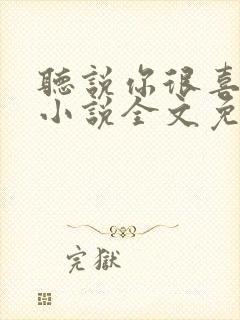 聽說你很喜
小說全文免
完獄